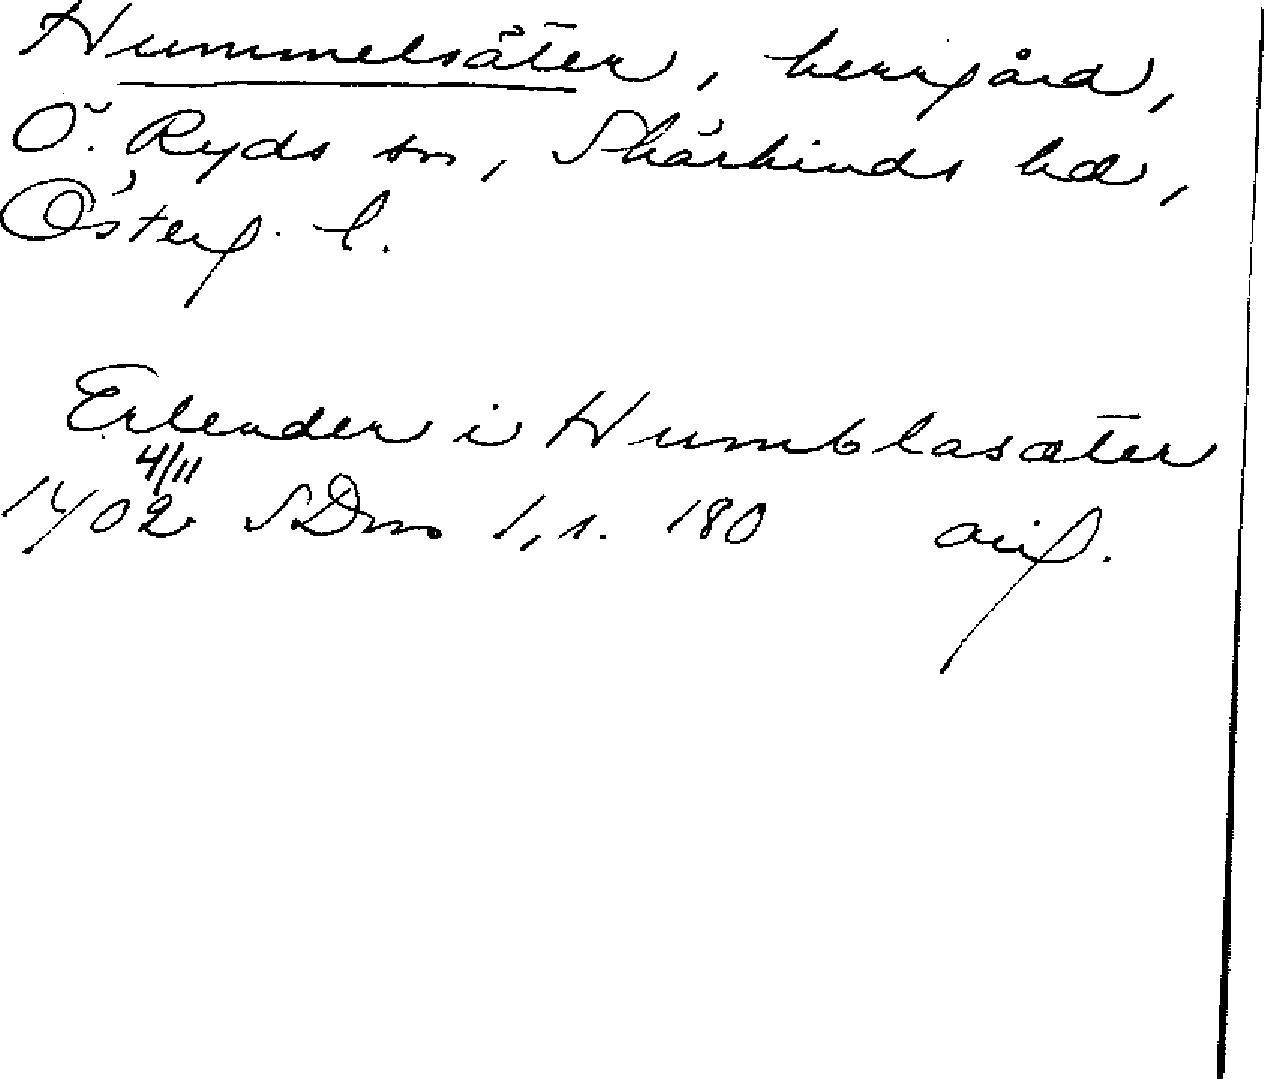 Hummelsäter, herrgård,
Ö. Ryds sn, Skärkinds hd,
Österg. l.
Erlender i Humblasæter
4/11
1402 SDns 1, s. 180 orig.